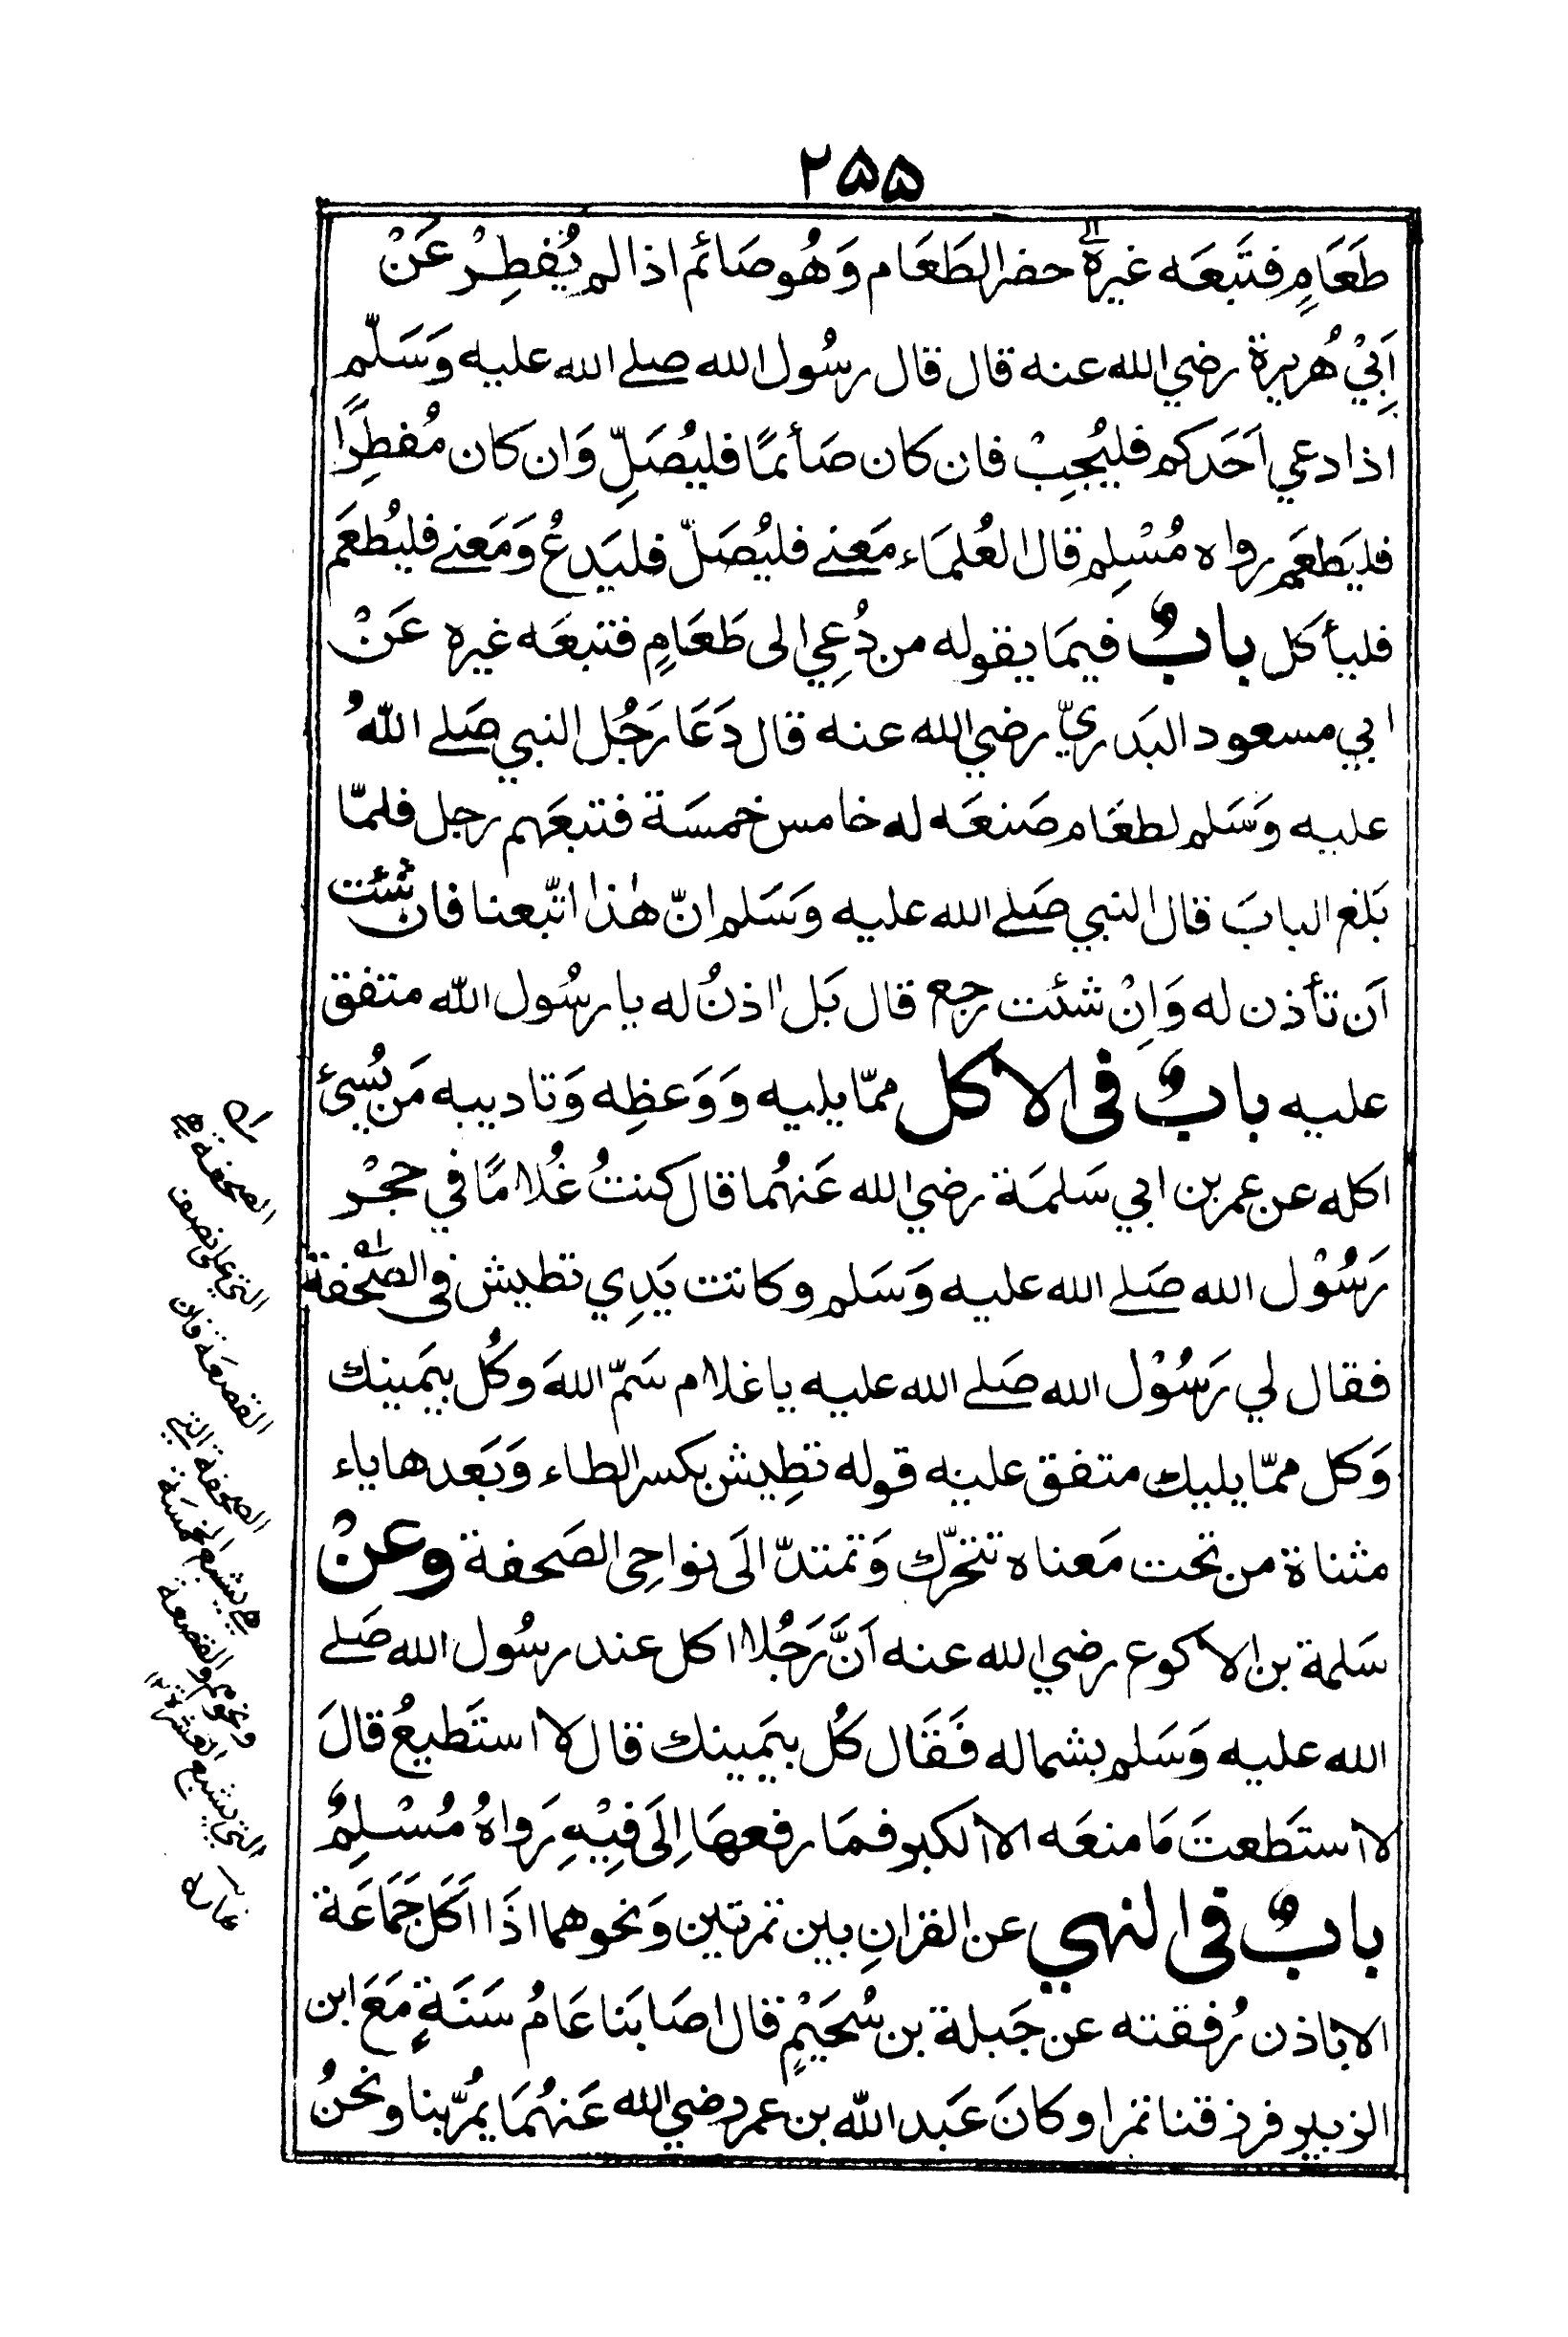 ٢٥٥
طَعَامٍ فتَبعَه غيرهٗ حضر الطَعَام وَهُو صَائم اذا لم يُفطِرْ عَنْ
اَبِيْ هُريرة رضي الله عنه قال قال رسُول الله صلے الله عليه وَسَلّم
اذا دعي احَدكم فليُجِبْ فان كان صَأئمًا فليُصَلِّ وَان كان مُفطِرًا
فليَطعَم رواه مُسْلِم قال العُلمَاء مَعنے فليُصَلّ فليَدعُ وَمَعنے فليُطعَم
فليأكل بابٌ فيمَا يقوله من دُعِي الى طَعَامٍ فتبعَه غيره عَنْ
ابي مسعود البَدريّ رضي الله عنه قال دَعَا رَجُل النبي صَلے اللهُ
عليه وَسَلم لطعَام صَنعَه له خامس خمسَة فتبعَهم رجل فلمّا
بَلغ البابَ قال النبي صَلے الله عليه وَسَلم انّ هٰذا اتّبعنا فان شئت
اَن تأذن له وَاِنْ شئت رجع قال بَل اٰذنُ له يا رسُول الله متفق
عليه بابٌ فى الاكل ممّا يليه وَوَعظِه وَتاديبه مَن يُسِئ
اكله عن عمر بن ابي سَلمَة رضي الله عَنهُما قال كنتُ غُلامًا في حَجْر
رَسُوْل الله صَلے الله عليه وَسَلم وكانت يَدِي تطيش في الصَّحفة
فقال لي رَسُوْل الله صَلے الله عليه يا غلام سَمّ اللهَ وكُل بيَمينك
وَكل ممّا يليك متفق عليه قوله تطِيش بكسر الطاء وَبَعدها ياء
مثناة من تحت مَعناه تتحرّك وَتمتدّ الَى نواحِى الصَحفة وعنْ
سَلمة بن الاكوع رضي الله عنه اَنَّ رَجُلا اكل عند رسُول الله صَلے
الله عليه وَسَلم بشماله فَقَال كُل بيَمينك قال لا استَطيعُ قالَ
لا استَطعتَ مَا منعَه الا الكبر فمَا رفعهَا اِلَى فِيْهِ رَواهُ مُسْلِمٌ
بابٌ فى النهي عن القرانِ بين تمرتين وَنحوهما اذَا اَكَل جَمَاعَة
الا باذن رُفقته عن جَبلة بن سُحَيْمٍ قال اصَابَنا عَامُ سَنَةٍ مَعَ ابن
الزبير فرزقنا تمرا وكانَ عَبد الله بن عمر رضي الله عَنهُمَا يمُرّ بنا ونحنُ
الصحفة هے
التي على نصف
القصعَة فان
الصحفة التي
هے يشبع الخمسَة
ونحوهم والقصعة
التي يشبع العشرة ١٢